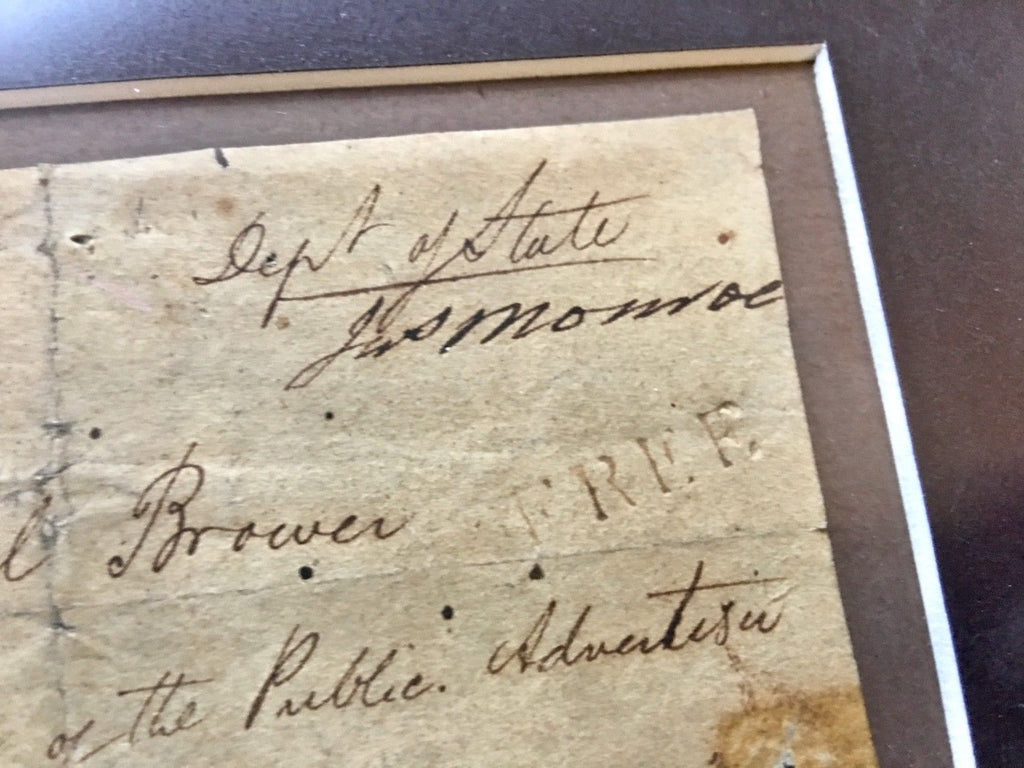 Dept of State
Jas Monroe
FREE
l Brower
of the Public. Advertiser